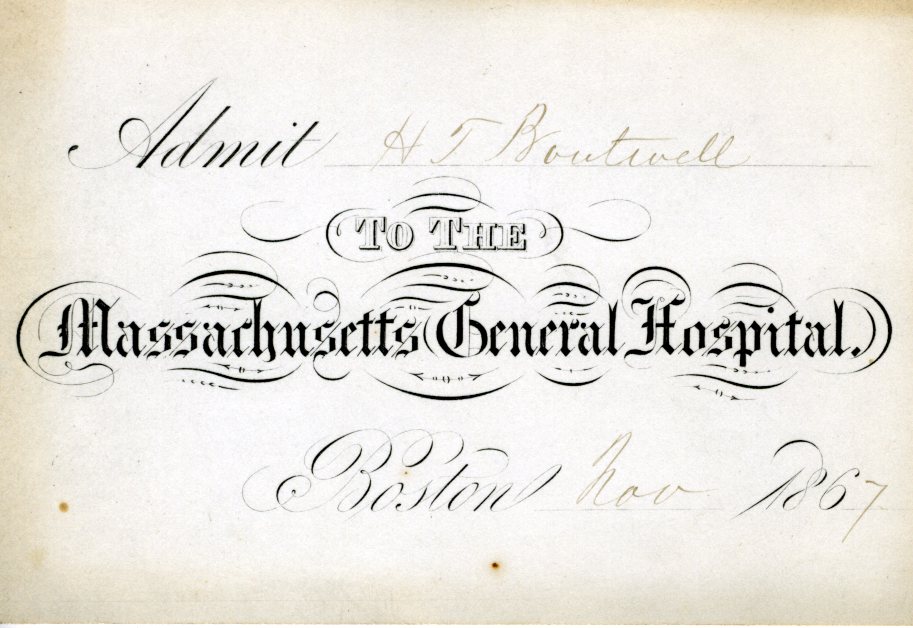 Admit H T Boutwell
TO THE
Massachusetts General Hospital.
Boston Nov 1867